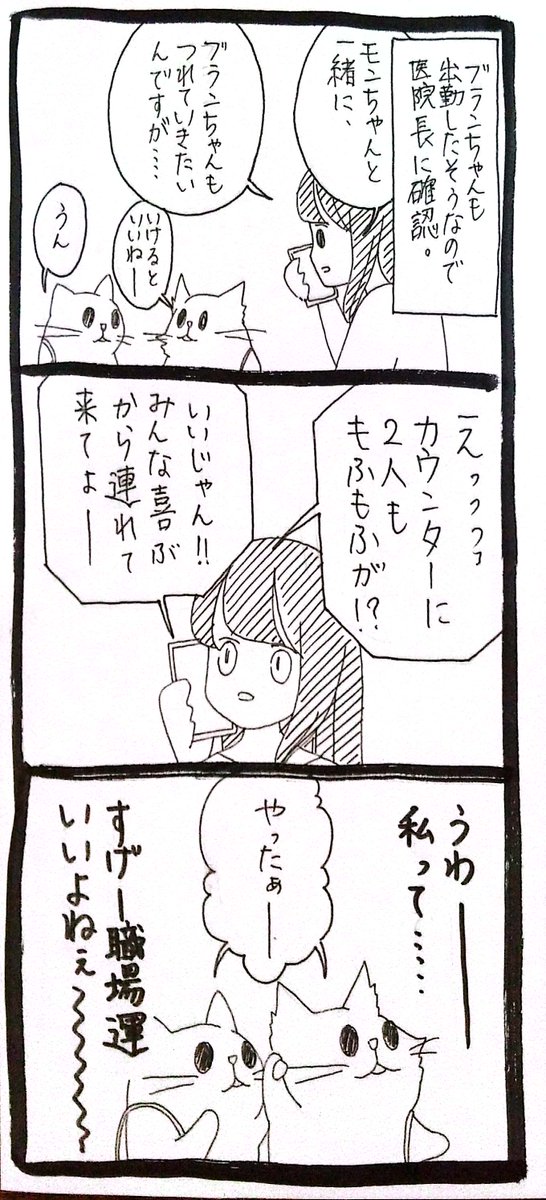 ブランちゃんも
出勤したそうなので
医院長に確認。
モンちゃんと
一緒に、
ブランちゃんも
つれていきたい
んですが……
いけると
いいねー
うん
えっっっ
カウンターに
2人も
もふもふが!?
いいじゃん!!
みんな喜ぶ
から連れて
来てよーー
うわーー
私って……
やったぁー
すげー職場運
いいよねぇ〜〜〜〜